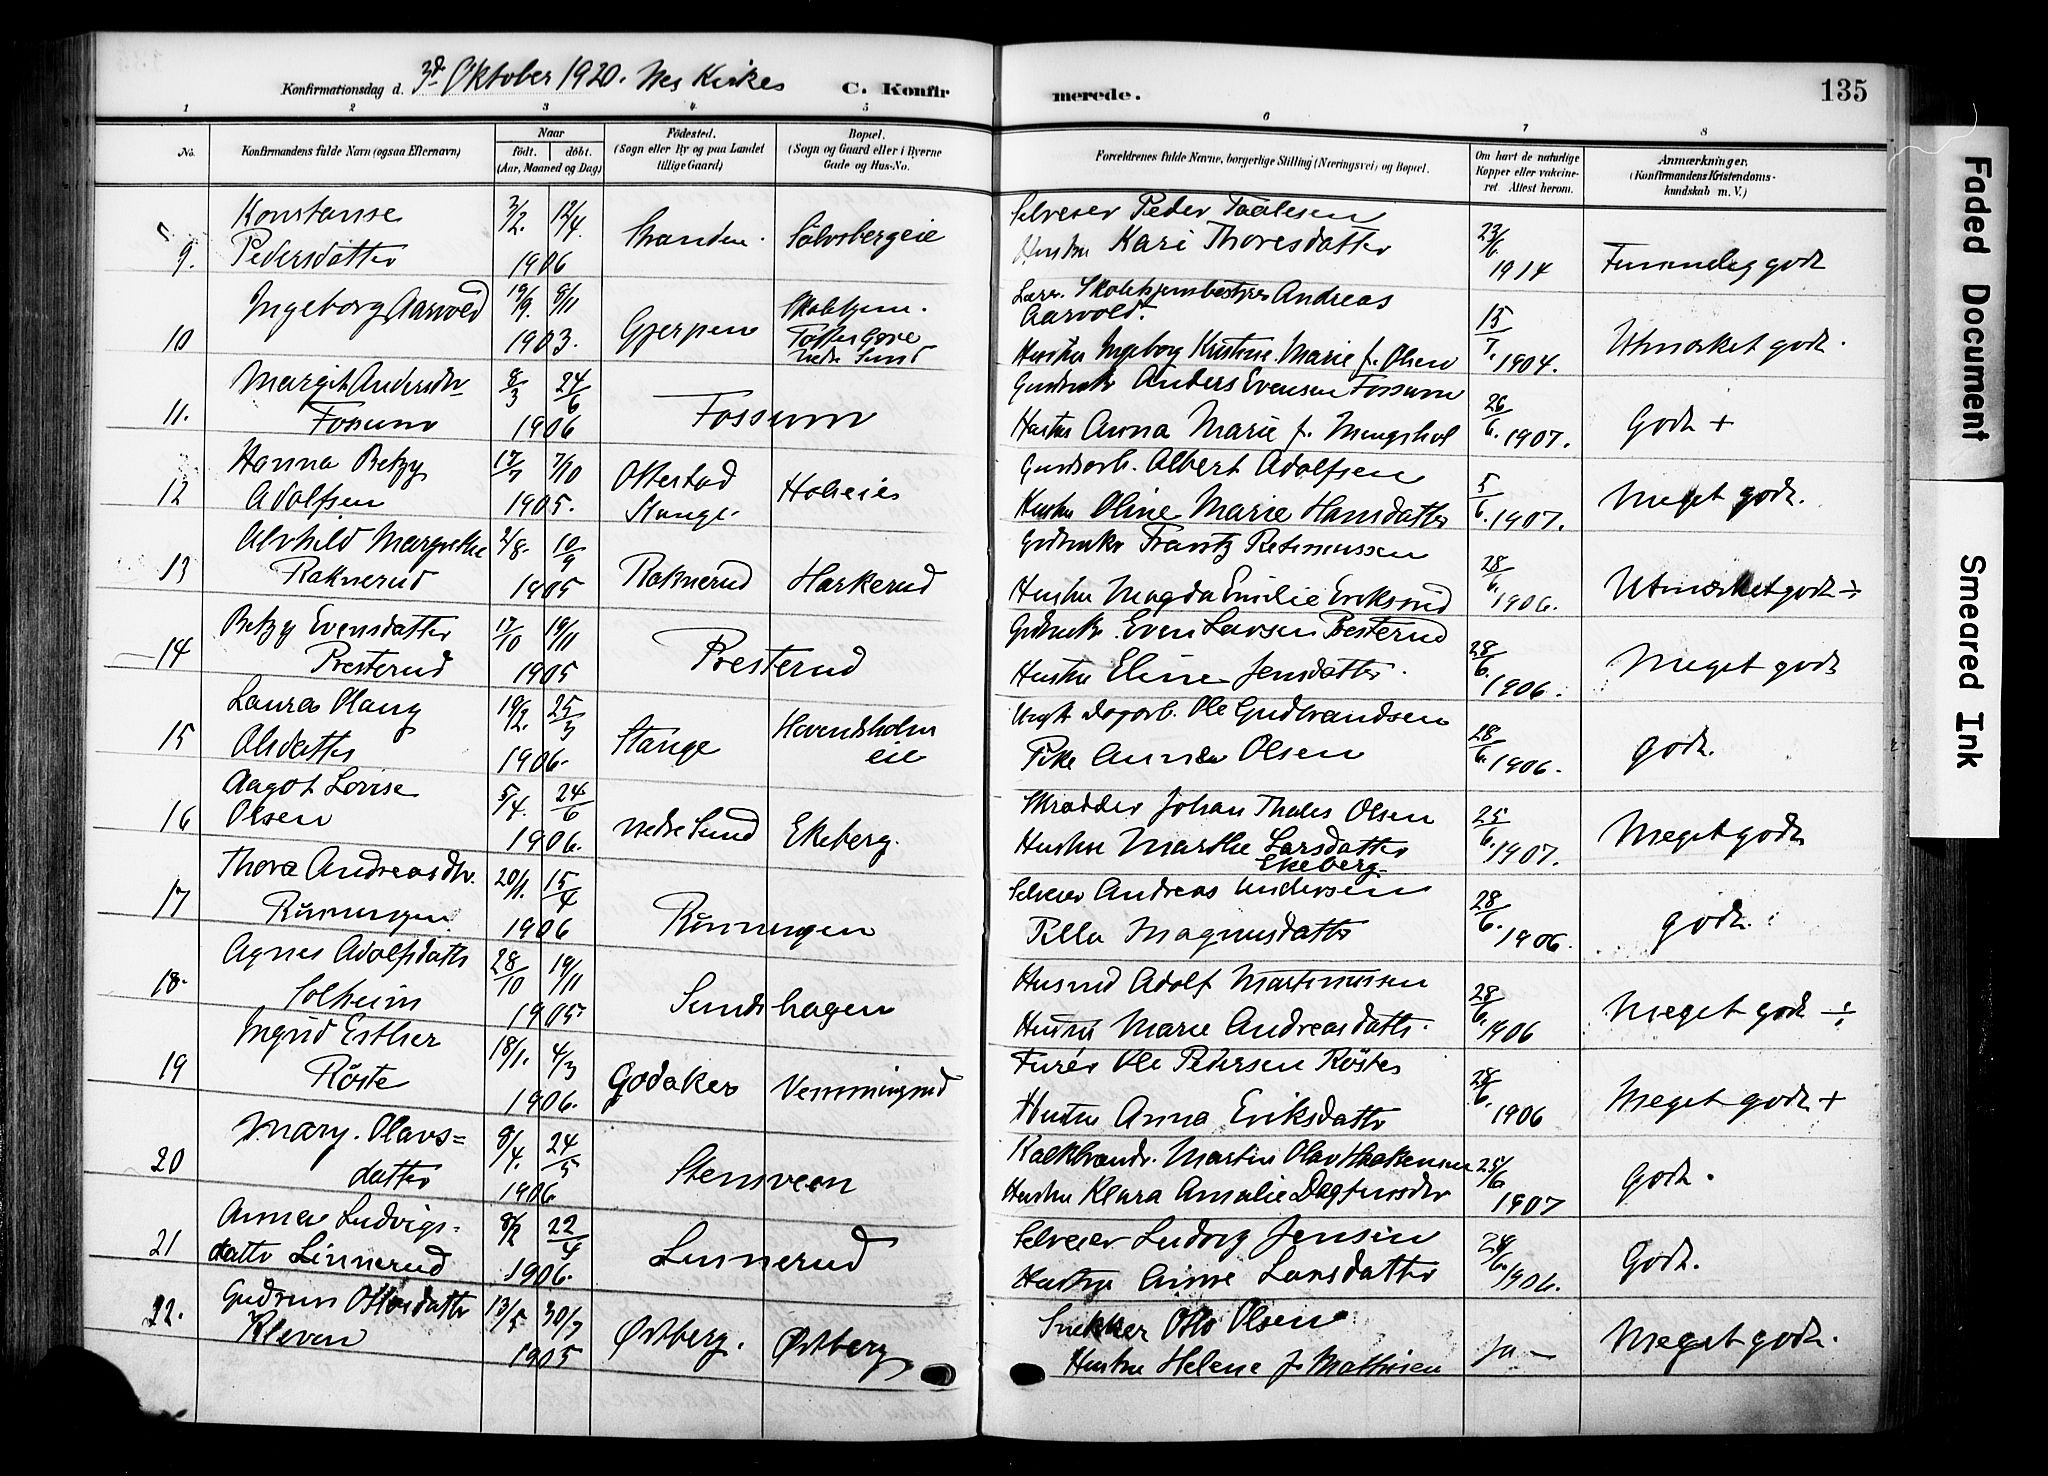 Konfirmationsdag d. 3d Oktober 1920. Nes Kirkes C. Konfirmerede. 135
1 2 3 4 5 6 7 8
No.
Konfirmandens fulde Navn (ogsaa Efternavn)
Naar
født. døbt.
(Aar, Maaned og Dag)
Födested.
(Sogn eller By og paa Landet
tillige Gaard)
Bopæl.
(Sogn og Gaard eller i Byerne
Gade og Hus-No.
Forældrenes fulde Navne, borgerlige Stilling (Næringsvei) og Bopæl.
Om havt de naturlige
Kopper eller vakcine-
ret. Attest herom.
Anmærkninger,
(Konfirmandens Kristendoms-
kundskab m. V.)
9. Konstanse Pedersdatter 3/2. 12/4. 1906 Stranden. Salvsbergeie
Selveier Peder Paalesen
Hustru Kari Thoresdatter 23/6 1914
10 Ingeborg Aarvold 19/9. 8/11 1903. Gjerpen Skolehjem. Toftes Gave nedre Sund
Lærer. Skolehjemsbestyrer Andreas
Aarvold.
Hustru Ingeborg Kristine Marie f. Olsen 15/7. 1904. Utmerket godt.
11. Margit Andersdtr Fossum 8/3 24/6 1906 Fossum
Gardbruker Anders Evensen Fossum
Hustru Anna Marie f. Mengshol 26/6. 1907. Godt +
12 Hanna Betzy Adolfsen 17/7 7/10 1905. Ottestad Stange. Holseies
Gardsarb. Albert Adolfsen
Hustru Oline Marie Hansdatter 5/6. 1907. Meget godt.
13 Alvhild Margrethe Raknerud 2/8. 10/9 1905 Raknerud Harkerud
Grdbruker Frantz Rasmussen
Hustru Magda Emilie Eriksrud 28/6. 1906. Utmerket godt ÷
14 Betzy Evensdatter Presterud 17/10 19/11 1905 Presterud
Grdbruker. Even Larsen Presterud
Hustru Eline Jensdatter. 28/6. 1906. Meget godt
15 Laura Olaug Olsdatter 19/2. 25/3 1906. Stange Hovendsholm eie
Ungk. Dagarb. Ole Gudbrandsen
Pike Anna Olsen 28/6. 1906. godt.
16 Aagot Lovise Olsen 5/4. 24/6 1906. nedre Sund Ekeberg.
Skrædder Johan Thales Olsen
Hustru Marthe Larsdatter
Ekeberg. 25/6. 1907. Meget godt
17 Thora Andreasdtr. Rønningen 20/1. 15/4 1906 Rønningen
Selveier Andreas Andersen
Pella Magnusdatter 28/6. 1906. godt.
18. Agnes Adolfsdatter Solheim 28/10 19/11 1905. Sundshagen
Husmd Adolf Martinussen
Hustru Marie Andreasdatter. 28/6. 1906 Meget godt ÷
19 Ingrid Esther Røste 18/1. 4/3 1906. Godaker Vemmingrud
Furér Ole Pedersen Røste
Hustru Anna Eriksdatter 28/6. 1906 Meget godt +
20 Mary. Olavs=
datter 8/4. 24/5 1906. Stensveen
Kalkbrænder. Martin Olav Haakensen
Hustru Klara Amalie Dagfinsdtr 25/6 1907 godt.
21 Anna Ludvigs=
datter Linnerud 8/2 22/4 1906. Linnerud
Selveier Ludvig Jensen
Hustru Anne Larsdatter 28/6 1906. Godt.
22. Gudrun Ottosdatter Kleven 13/5 30/7 1905 Østberg. Østberg
Snekker Otto Olsen
Hustru Helene f. Mathisen Ja – Meget godt.
Faded Document
Smeared Ink